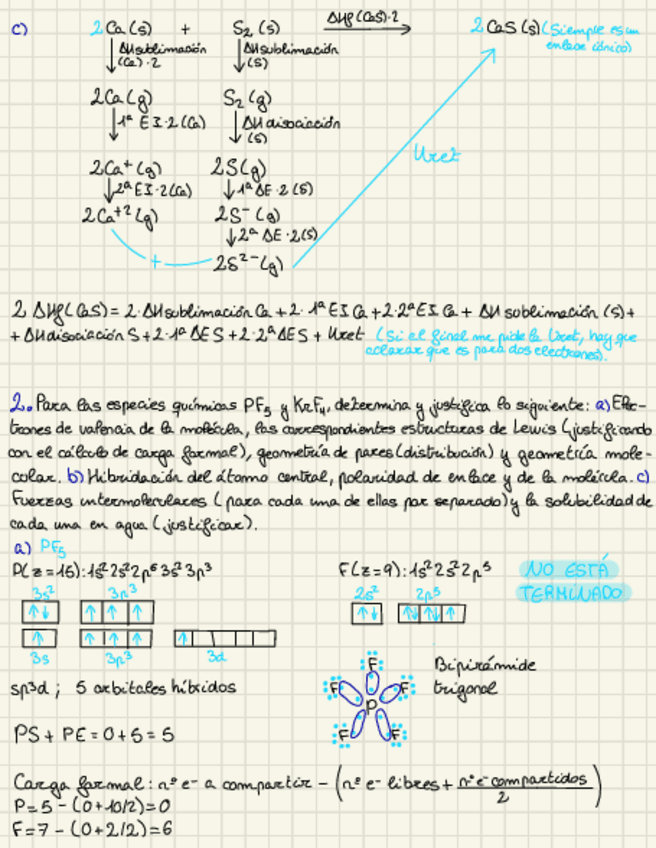 c) 2Ca(s) + S₂(s) ΔHf(CaS)·2 2CaS(s) (Siempre es un
enlace iónico)
↓ΔHsublimación (Ca)·2 ↓ΔHsublimación (S)
2Ca(g) S₂(g)
↓1ª EI·2(Ca) ↓ΔHdisociación (S)
2Ca⁺(g) 2S(g)
Uret
↓2ªEI·2(Ca) ↓1ªΔE·2(S)
2Ca⁺²(g) 2S⁻(g)
↓2ªΔE·2(S)
+ 2S²⁻(g)
2ΔHf(CaS)=2·ΔHsublimación Ca+2·1ªEI Ca+2·2ªEI Ca+ΔHsublimación (S)+
+ΔHdisociación S+2·1ªΔES+2·2ªΔES+Uret (Si el final me pide la Uret, hay que
colocar que es para dos electrones).
2. Para las especies químicas PF₅ y KrF₄, determina y justifica lo siguiente: a) Elec-
trones de valencia de la molécula, las correspondientes estructuras de Lewis (justificando
con el cálculo de carga formal), geometría de pares (distribución) y geometría mole-
cular. b) Hibridación del átomo central, polaridad de enlace y de la molécula. c)
Fuerzas intermoleculares (para cada una de ellas por separado) y la solubilidad de
cada una en agua (justificar).
a) PF₅
P(z=15):1s²2s²2p⁶3s²3p³ F(z=9):1s²2s²2p⁵ NO ESTÁ
TERMINADO
3s² 3p³ 2s² 2p⁵
↑↓ ↑ ↑ ↑ ↑↓ ↑↓ ↑↓ ↑
↑ ↑ ↑ ↑ ↑
3s 3p³ 3d
F
F F
P
F F
Bipirámide
trigonal
sp³d; 5 orbitales híbridos
PS+PE=0+5=5
Carga formal: nº e- a compartir - (nº e- libres + nº e- compartidos/2)
P=5-(0+10/2)=0
F=7-(0+2/2)=6